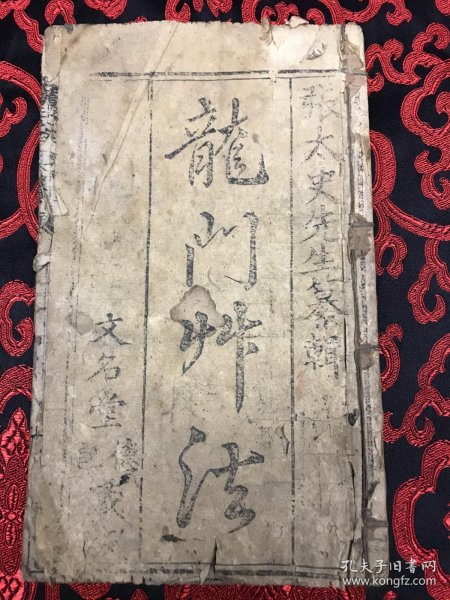 張太史先生纂輯
龍門艸法
文名堂
孔夫子旧书网
www.kongfz.com